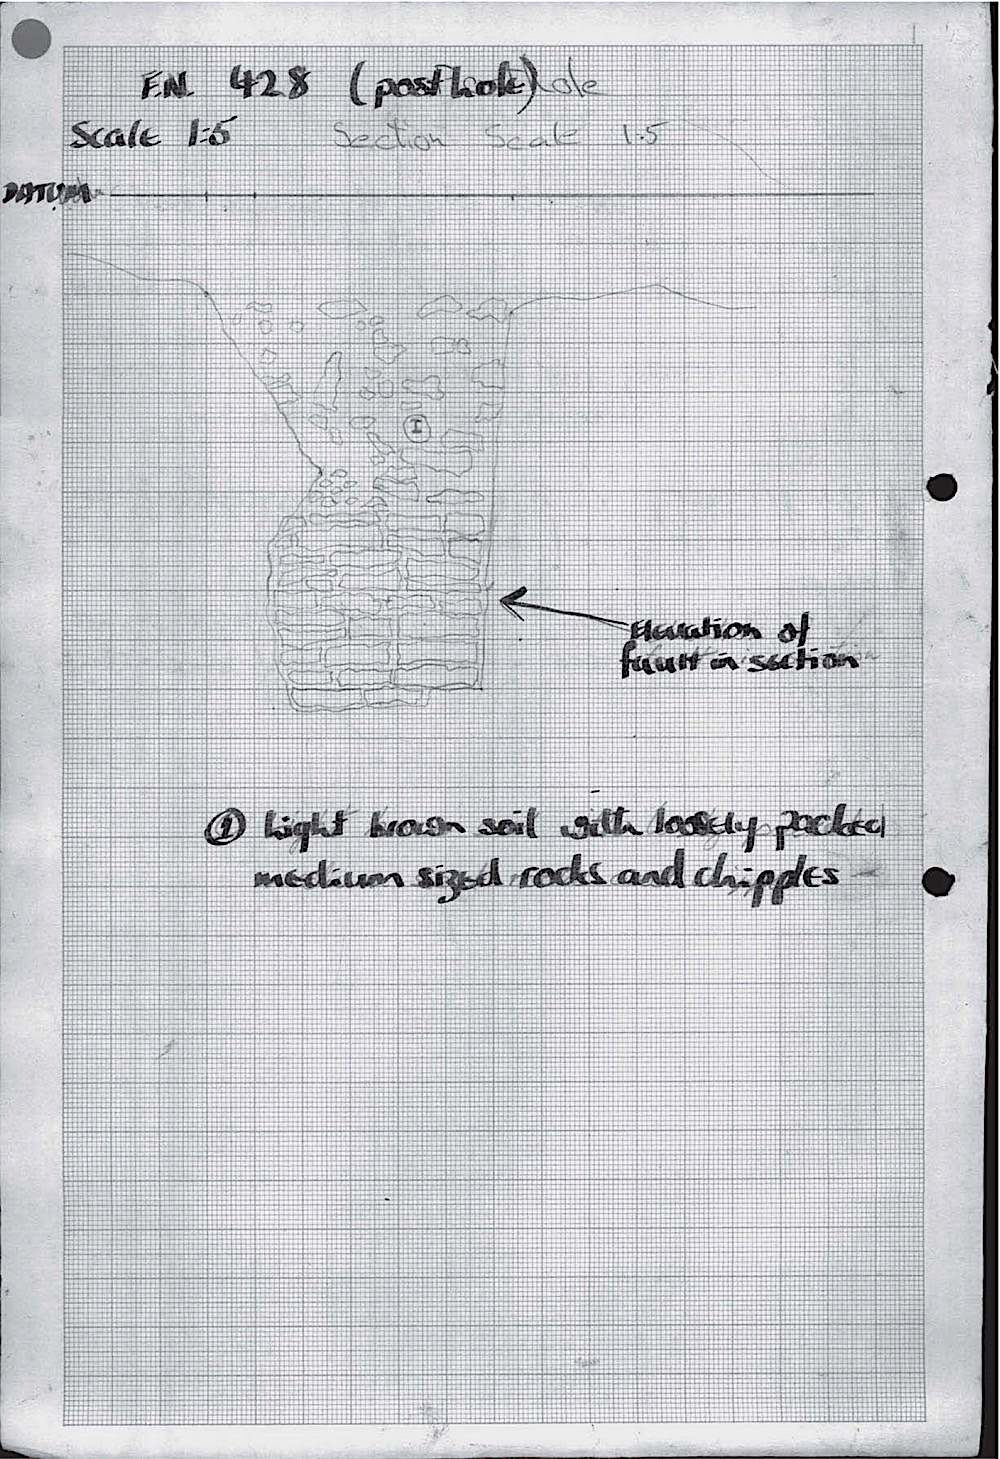 F.N. 428 (posthole)
Scale 1:5 Section Scale 1:5
DATUM
I
Elevation of
fault in section
① Light brown soil with loosely packed
medium sized rocks and chipples